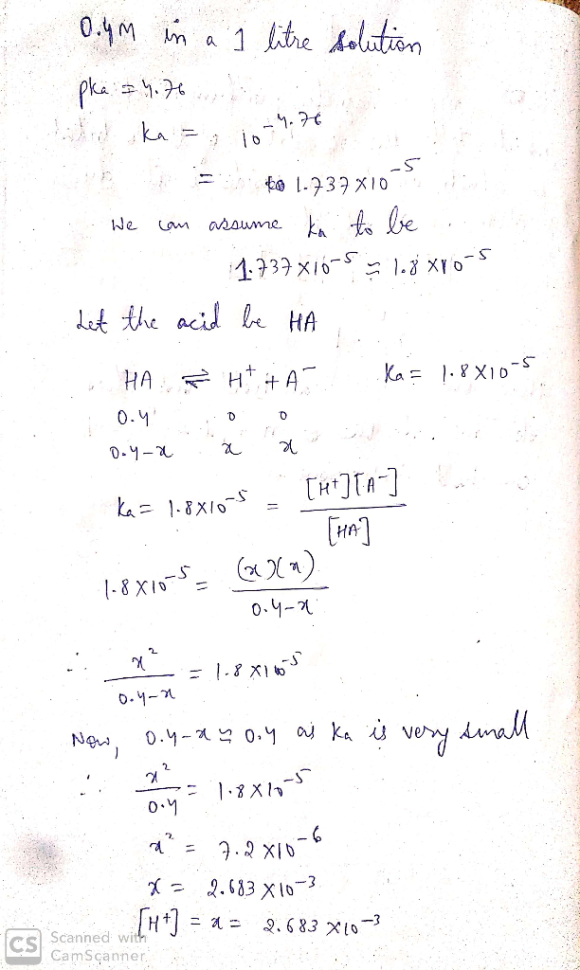 0.4M in a 1 litre solution
pka = 4.76
ka = 10^-4.76
= 1.737 X10^-5
We can assume ka to be
1.737 X10^-5 ≈ 1.8 X10^-5
Let the acid be HA
HA ⇌ H+ + A- Ka = 1.8X10^-5
0.4 0 0
0.4-x x x
Ka = 1.8X10^-5 = [H+][A-] / [HA]
1.8 X10^-5 = (x)(x) / 0.4-x
∴ x² / 0.4-x = 1.8 X10^-5
Now, 0.4-x ≈ 0.4 as ka is very small
∴ x² / 0.4 = 1.8X10^-5
x² = 7.2 X10^-6
x = 2.683 X10^-3
[H+] = x = 2.683 X10^-3
CS Scanned with
CamScanner